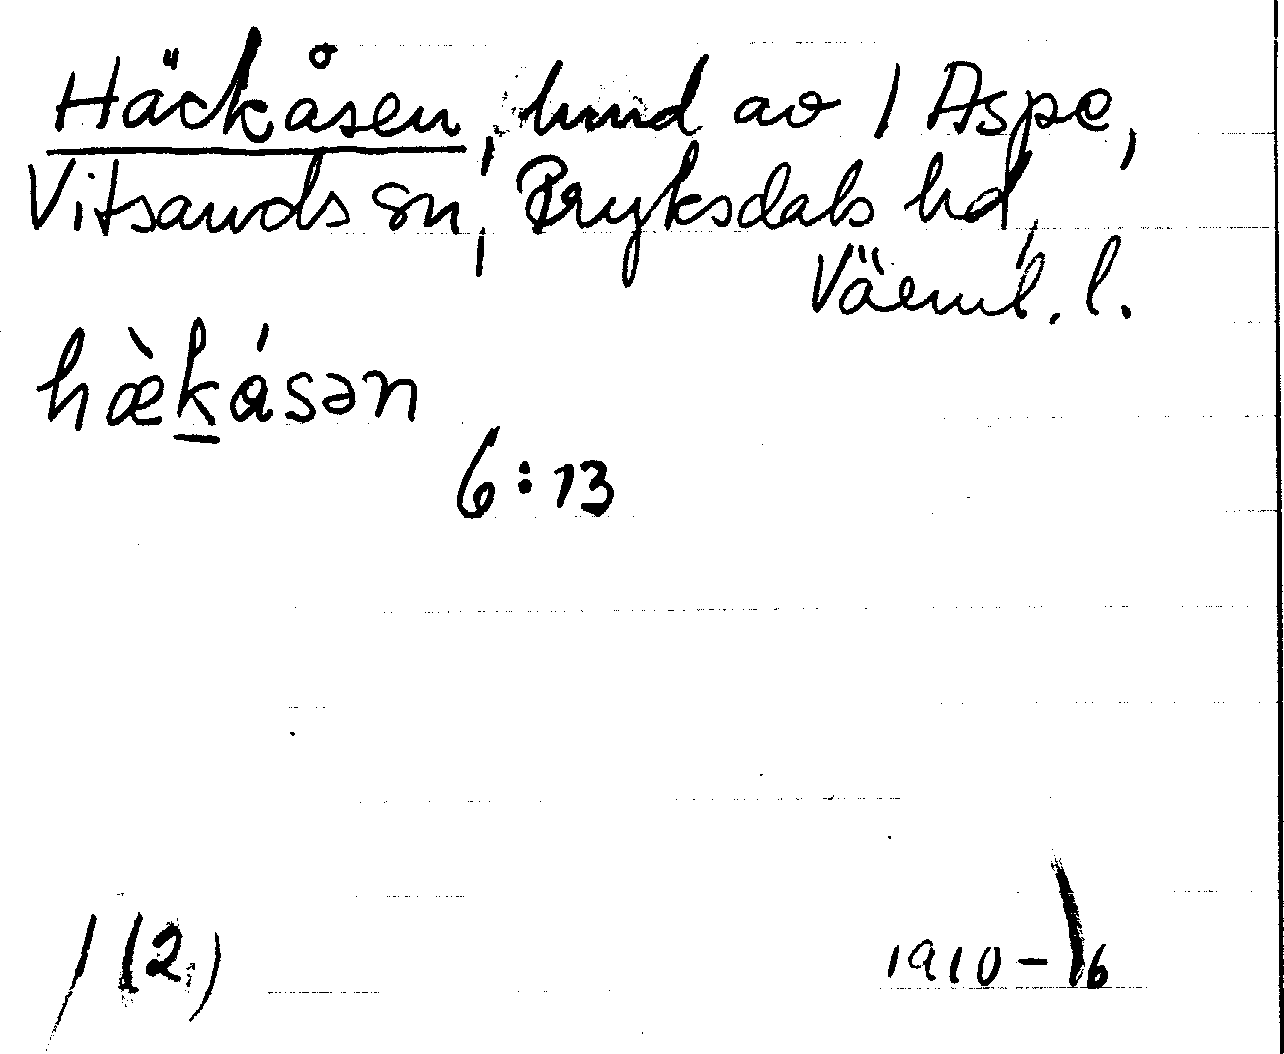 Häckåsen, hmd av 1 Aspe,
Vitsands sn, Fryksdals hd,
Värml. l.
hæ̀k̲ásən
6:13
1(2)
1910-16